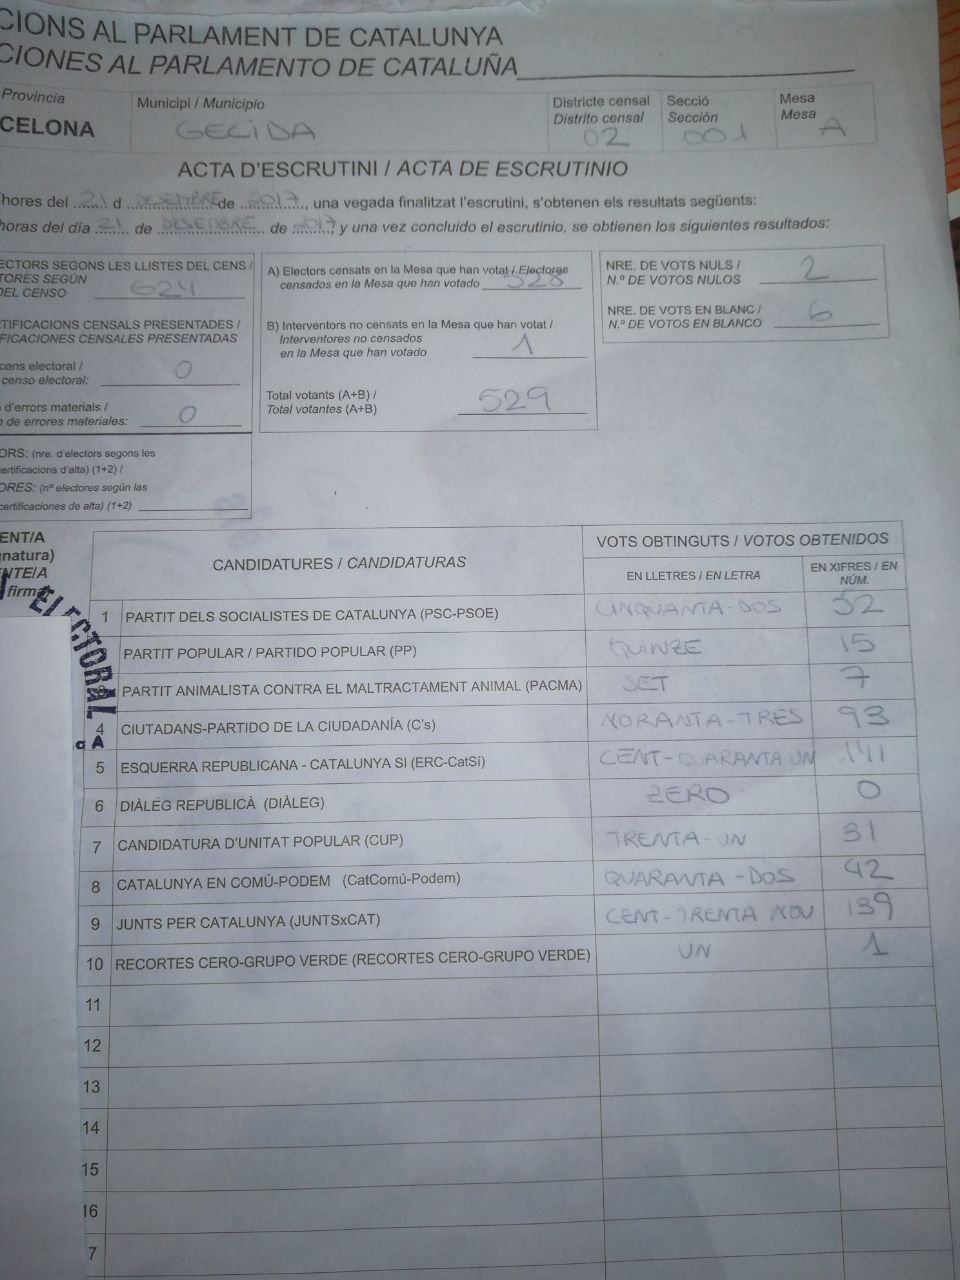 CIONS AL PARLAMENT DE CATALUNYA
CIONES AL PARLAMENTO DE CATALUÑA
Provincia
CELONA
Municipi / Municipio
GELIDA
Districte censal
Distrito censal
02
Secció
Sección
001
Mesa
Mesa
A
ACTA D'ESCRUTINI / ACTA DE ESCRUTINIO
hores del 21 d DESEMBRE de 2017, una vegada finalitzat l'escrutini, s'obtenen els resultats següents:
horas del día 21 de DESEMBRE de 2017, y una vez concluido el escrutinio, se obtienen los siguientes resultados:
ECTORS SEGONS LES LLISTES DEL CENS /
TORES SEGÚN
DEL CENSO 624
TIFICACIONS CENSALS PRESENTADES /
FICACIONES CENSALES PRESENTADAS
cens electoral /
censo electoral: 0
d'errors materials /
n de errores materiales: 0
ORS: (nre. d'electors segons les
certificacions d'alta) (1+2) /
ORES: (nº electores según las
certificaciones de alta) (1+2)
A) Electors censats en la Mesa que han votat / Electores
censados en la Mesa que han votado 528
B) Interventors no censats en la Mesa que han votat /
Interventores no censados
en la Mesa que han votado 1
Total votants (A+B) /
Total votantes (A+B) 529
NRE. DE VOTS NULS /
N.º DE VOTOS NULOS 2
NRE. DE VOTS EN BLANC /
N.º DE VOTOS EN BLANCO 6
ENT/A
natura)
NTE/A
firma
ELECTORAL
A
CANDIDATURES / CANDIDATURAS
VOTS OBTINGUTS / VOTOS OBTENIDOS
EN LLETRES / EN LETRA
EN XIFRES / EN
NÚM.
1 PARTIT DELS SOCIALISTES DE CATALUNYA (PSC-PSOE) CINQUANTA-DOS 52
PARTIT POPULAR / PARTIDO POPULAR (PP) QUINZE 15
3 PARTIT ANIMALISTA CONTRA EL MALTRACTAMENT ANIMAL (PACMA) SET 7
4 CIUTADANS-PARTIDO DE LA CIUDADANÍA (C's) NORANTA-TRES 93
5 ESQUERRA REPUBLICANA - CATALUNYA SI (ERC-CatSí) CENT-QARANTA UN 141
6 DIÀLEG REPUBLICÀ (DIÀLEG) ZERO 0
7 CANDIDATURA D'UNITAT POPULAR (CUP) TRENTA-UN 31
8 CATALUNYA EN COMÚ-PODEM (CatComú-Podem) QUARANTA-DOS 42
9 JUNTS PER CATALUNYA (JUNTSxCAT) CENT-TRENTA NOU 139
10 RECORTES CERO-GRUPO VERDE (RECORTES CERO-GRUPO VERDE) UN 1
11
12
13
14
15
16
7